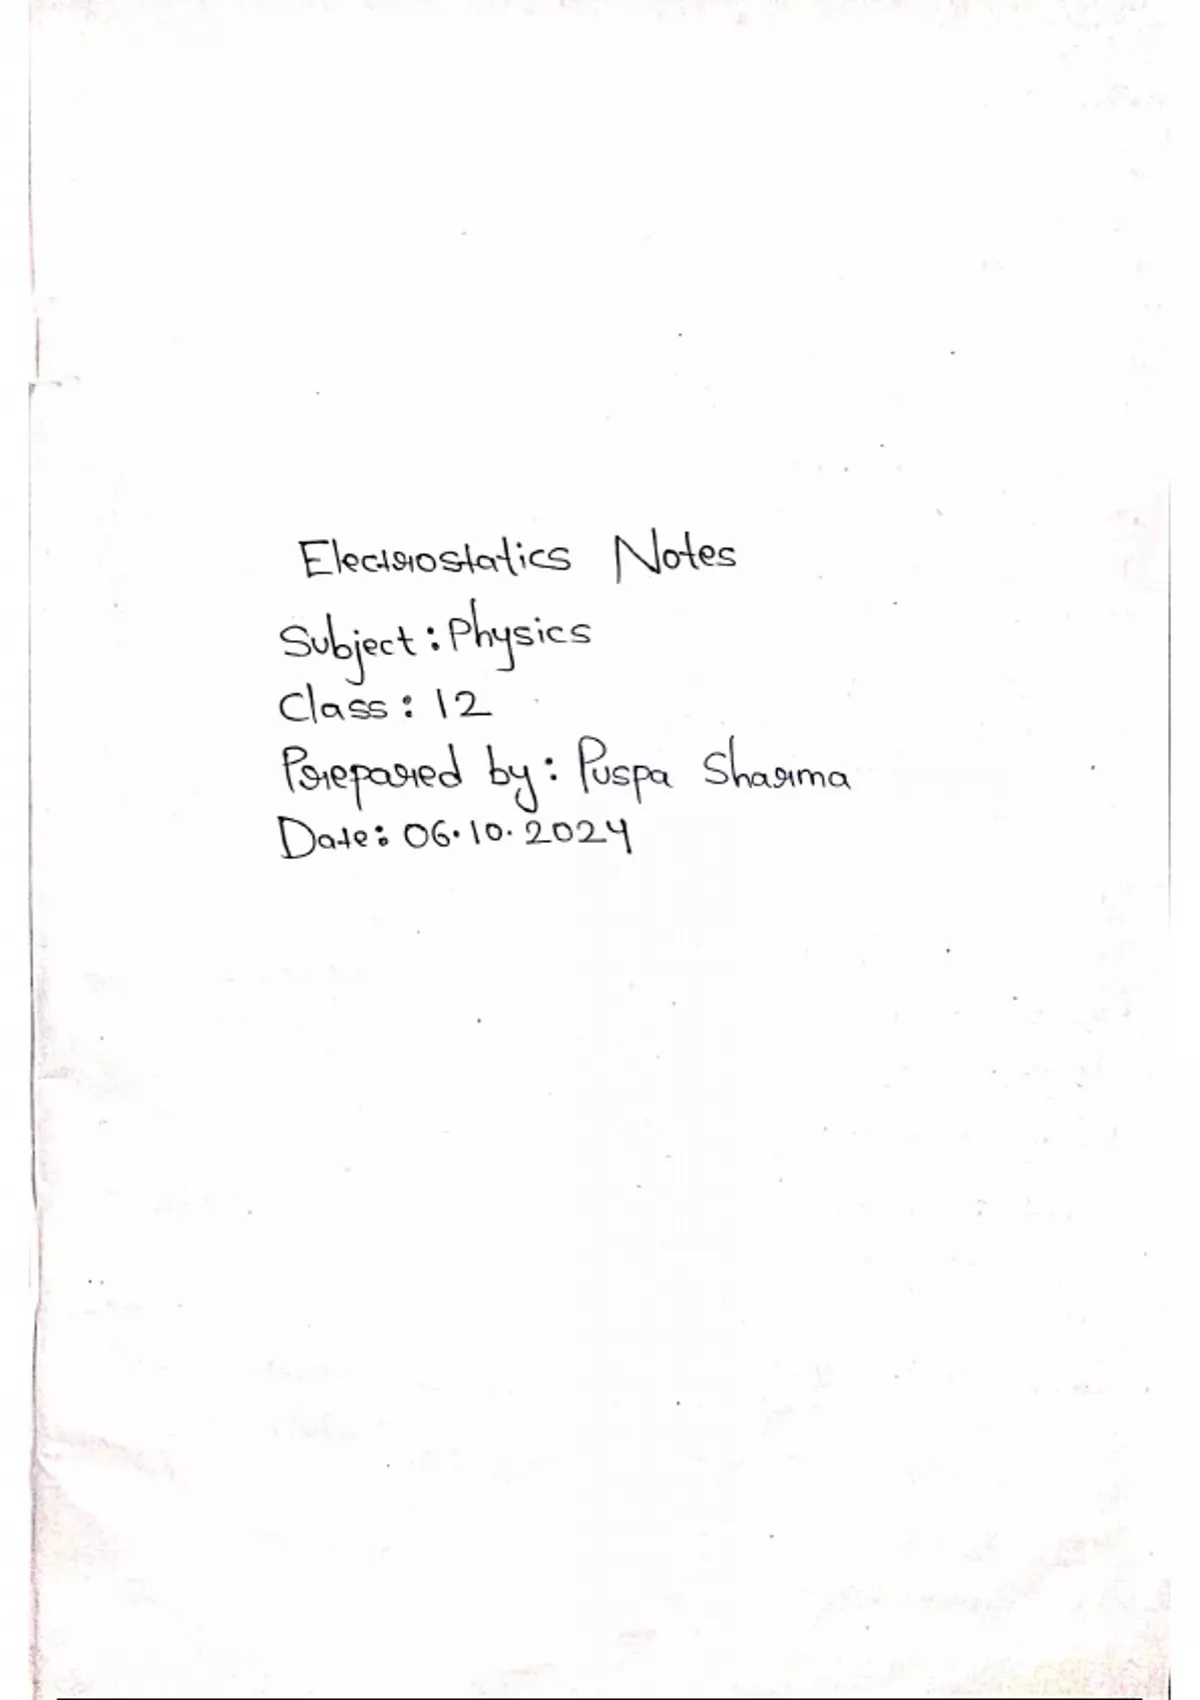 Electrostatics Notes
Subject: Physics
Class: 12
Prepared by: Puspa Sharma
Date: 06.10.2024